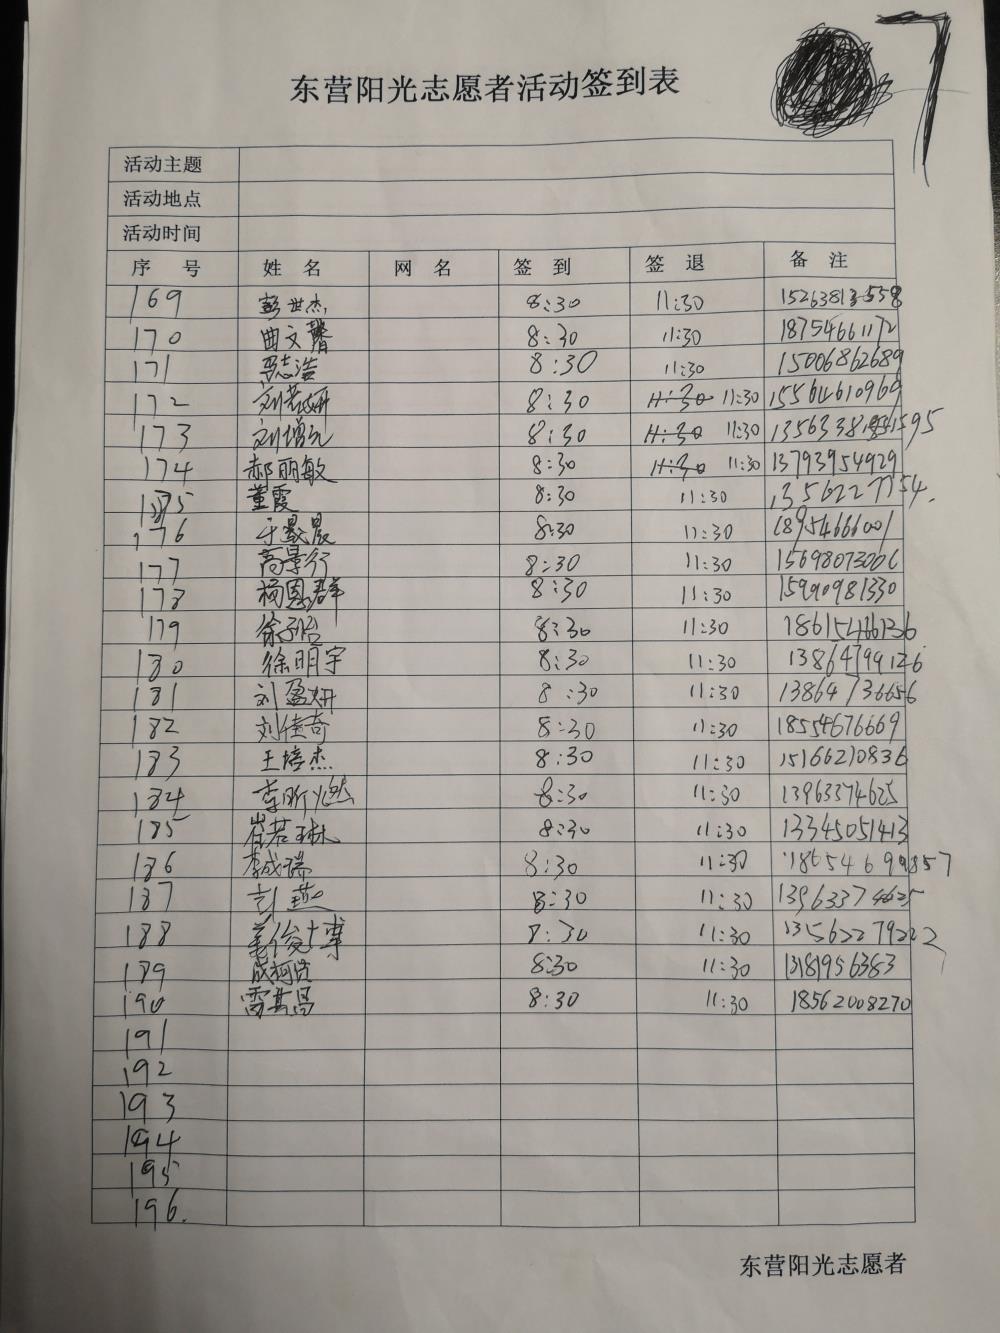 7
东营阳光志愿者活动签到表
活动主题
活动地点
活动时间
序 号 姓 名 网 名 签 到 签 退 备 注
169 彭世杰 8:30 11:30
170 曲文馨 8:30 11:30 18754661172
171 马志浩 8:30 11:30 15006862689
172 刘若妍 8:30 11:30 11:30 15564610969
173 刘增元 8:30 11:30 11:30
174 郝丽敏 8:30 11:30 11:30 13793954929
175 董霞 8:30 11:30 13562277154.
176 8:30 11:30 18954666001
177 高景行 8:30 11:30 15698073006
178 杨恩群 8:30 11:30 15990981330
179 徐子怡 8:30 11:30
180 徐明宇 8:30 11:30 13864799126
181 刘盈妍 8:30 11:30 13864736656
182 刘佳奇 8:30 11:30 18554676669
183 王培杰 8:30 11:30 15166210836
184 李昕燃 8:30 11:30 13963374625
185 崔若琳 8:30 11:30 13345051413
186 李成瑞 8:30 11:30 18654699857
187 彭燕 8:30 11:30 13963374625
188 姜俊博 8:30 11:30 13562279222
189 成柯贤 8:30 11:30 13181956383
190 雷其昌 8:30 11:30 18562008270
191
192
193
194
195
196.
东营阳光志愿者